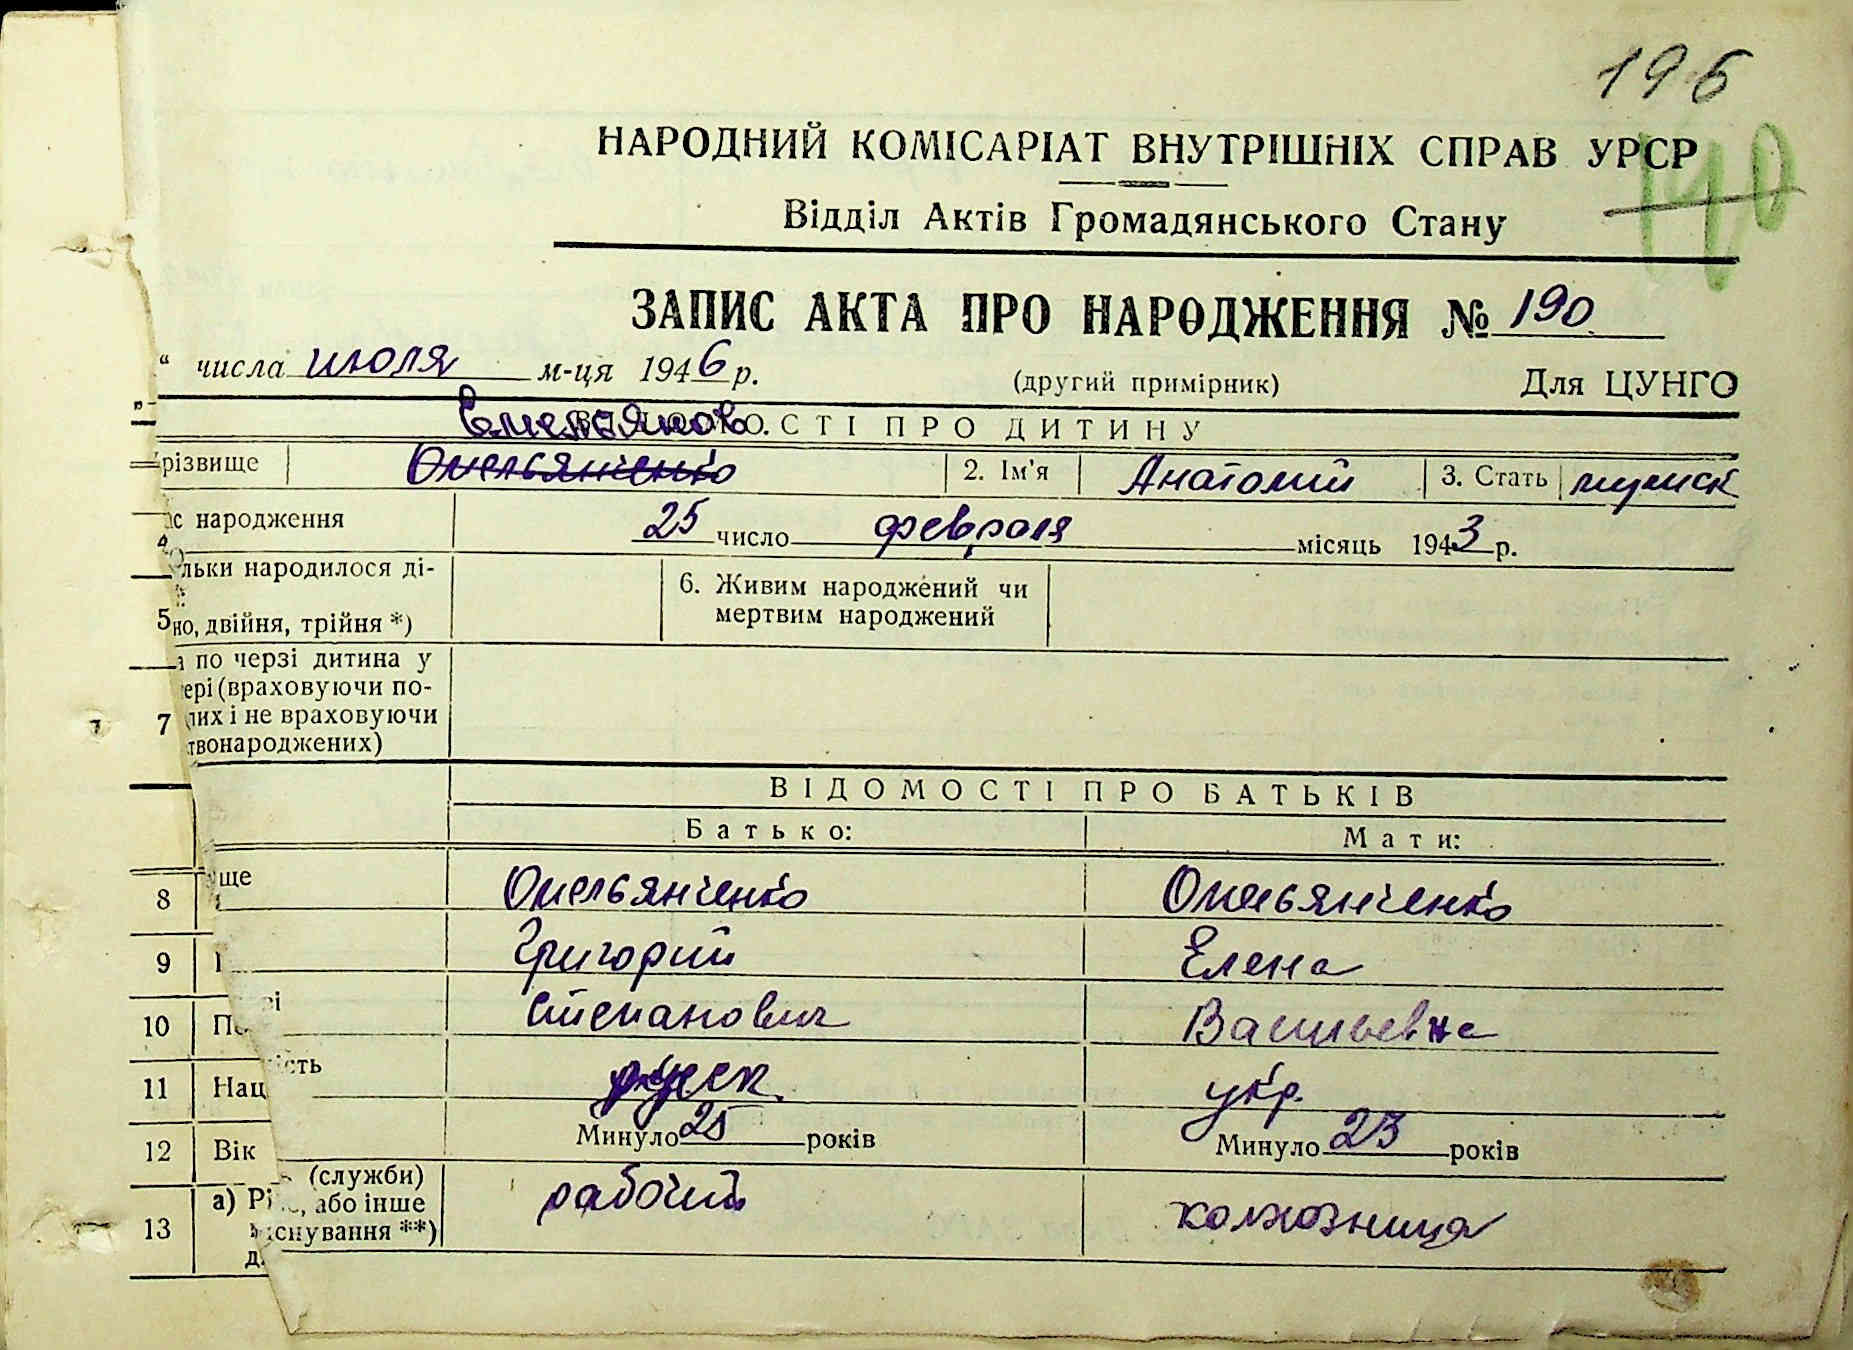 196
190
НАРОДНИЙ КОМІСАРІАТ ВНУТРІШНІХ СПРАВ УРСР
Відділ Актів Громадянського Стану
ЗАПИС АКТА ПРО НАРОДЖЕННЯ № 190
“ числа июля м-ця 1946 р. (другий примірник) Для ЦУНГО
Емельянов.
ОСТІ ПРО ДИТИНУ
різвище Омельянченко 2. Ім'я Анатолий 3. Стать мужск
ас народження 25 число февраля місяць 1943 р.
льки народилося ді-
5 но, двійня, трійня *) 6. Живим народжений чи мертвим народжений
а по черзі дитина у
ері (враховуючи по-
7 лих і не враховуючи
твонароджених)
ВІДОМОСТІ ПРО БАТЬКІВ
Батько: Мати:
8 ще Омельянченко Омельянченко
9 Григорий Елена
10 По Степанович Васильевна
11 Нац ість русск. укр.
12 Вік Минуло 25 років Минуло 23 років
(служби)
13 а) Рі або інше рабочий колхозница
існування **)